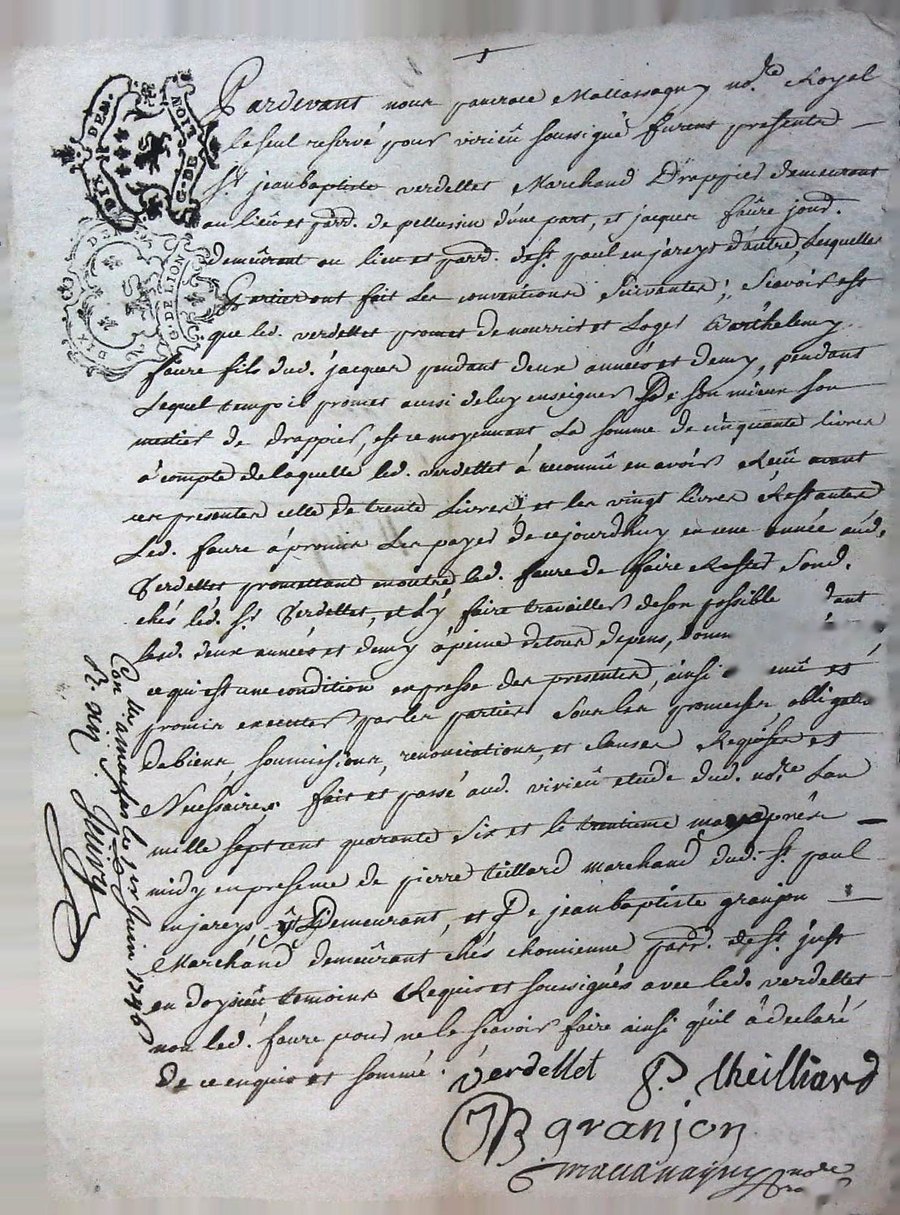 DIX DEN.
NOIT
G. DE
DIX DE
G. DE LION
Pardevant nous pancrace Mallassagny no.re Royal
le seul reservé pour virieü soussigné furent presents
Sr jean baptiste verdellet Marchand Drappier demeurant
au lieu et parr. de pellussin d'une part, et jacques faure jour.
demeûrant au lieu et parr. de st. paul en jareys d'autre, Lesquelles
Parties ont fait les conventions suivantes; Scavoir est
que led. verdellet promet de nourrir et Loger Barthelemy
faure fils dud. jacques pendant deux années et demy, pendant
Lequel temps il promet aussi de luy enseigner De son mieux son
metier de drappier, et ce moyennant La somme de cinquante livres
à compte de laquelle led. verdellet à reconnû en avoir Reçû avant
ces presentes celle de trente Livres, et les vingt livres Restantes
Led. faure à promis Les payer de ce jourdhuy en une année aud.
Verdellet promettant en outre led. faure de faire Rester Sond.
chés led. Sr. Verdellet, et L'y faire travailler de son possible dant
lesd. deux années et demy à peine de tous depens, domm
ce qui est une condition expresse des presentes, ainsi et
promis executer par les parties Sous les promesses obligat.
de biens, soumissions, renonciations, et clauses Requises et
Necessaires fait et passé aud. virieü etude dud. no.re Lan
mille sept cent quarante six et le trentieme may après
midy en presence de pierre teillard marchand dud. st. paul
en jareys y Demeurant, et De jean baptiste granjon
Marchand demeûrant chés chomienne parr. de st. just
en doysieü temoins Requis et soussignés avec led. verdellet
non led. faure pour ne le scavoir faire ainsi qu'il à declaré
de ce enquis et sommé.
verdellet P. theilliard
JB granjon
mallassagny no.re
Con. a st le 1er juin 1746
R.